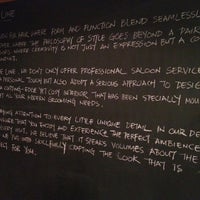 LINE
FOR HAIR WHERE FORM AND FUNCTION BLEND SEAMLESSLY
WHERE THE PHILOSOPHY OF STYLE GOES BEYOND A PAIR
WHERE CREATIVITY IS NOT JUST AN EXPRESSION BUT A
LINE, WE DON'T ONLY OFFER PROFESSIONAL SALOON SERVICE
PERSONAL TOUCH BUT ALSO ADOPT A SERIOUS APPROACH TO DESIGN
CUTTING-EDGE YET COSY INTERIOR THAT HAS BEEN SPECIALLY
ALL YOUR GROOMING NEEDS.
PAYING ATTENTION TO EVERY LITTLE UNIQUE DETAIL IN OUR
THAT YOU ENJOY AND EXPERIENCE THE PERFECT AMBIENCE
EVERY VISIT. WE BELIEVE THAT IT SPEAKS VOLUMES ABOUT THE
WE'VE INTO SKILFULLY CRAFTING THE LOOK THAT IS
FOR YOU.